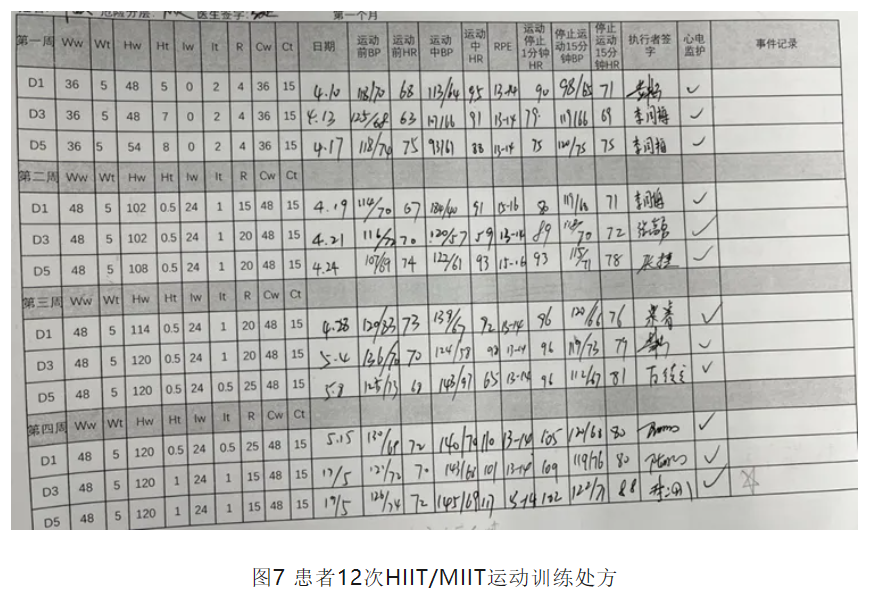 危险分层: 医生签字: 第一个月
第一周 Ww Wt Hw Ht Iw It R Cw Ct 日期 运动前BP 运动前HR 运动中BP 运动中HR RPE 运动停止1分钟HR 停止运动15分钟BP 停止运动15分钟HR 执行者签字 心电监护 事件记录
D1 36 5 48 5 0 2 4 36 15 4.10 118/70 68 113/64 95 13-14 90 98/65 71 ✓
D3 36 5 48 7 0 2 4 36 15 4.13 125/68 63 107/66 91 13-14 79 117/66 69 ✓
D5 36 5 54 8 0 2 4 36 15 4.17 118/74 75 93/61 88 13-14 75 120/75 75 ✓
第二周 Ww Wt Hw Ht Iw It R Cw Ct
D1 48 5 102 0.5 24 1 15 48 15 4.19 114/70 67 91 15-16 71 ✓
D3 48 5 102 0.5 24 1 20 48 15 4.21 70 120/57 59 13-14 89 72 ✓
D5 48 5 108 0.5 24 1 20 48 15 4.24 107/69 74 122/61 93 15-16 93 115/71 78 ✓
第三周 Ww Wt Hw Ht Iw It R Cw Ct
D1 48 5 114 0.5 24 1 20 48 15 4.28 73 139/67 92 13-14 96 120/66 76 ✓
D3 48 5 120 0.5 24 1 20 48 15 5.4 136/70 70 124/58 98 13-14 96 119/73 79 ✓
D5 48 5 120 0.5 24 0.5 25 48 15 5.8 125/73 68 143/97 65 13-14 96 112/67 81 ✓
第四周 Ww Wt Hw Ht Iw It R Cw Ct
D1 48 5 120 0.5 24 0.5 25 48 15 5.15 130/69 72 140/70 110 13-14 105 120/68 80 ✓
D3 48 5 120 1 24 1 15 48 15 17/5 70 143/66 101 13-14 109 119/76 80 ✓
D5 48 5 120 1 24 1 15 48 15 19/5 126/74 72 145/69 117 13-14 122/71 88 ✓
图7 患者12次HIIT/MIIT运动训练处方